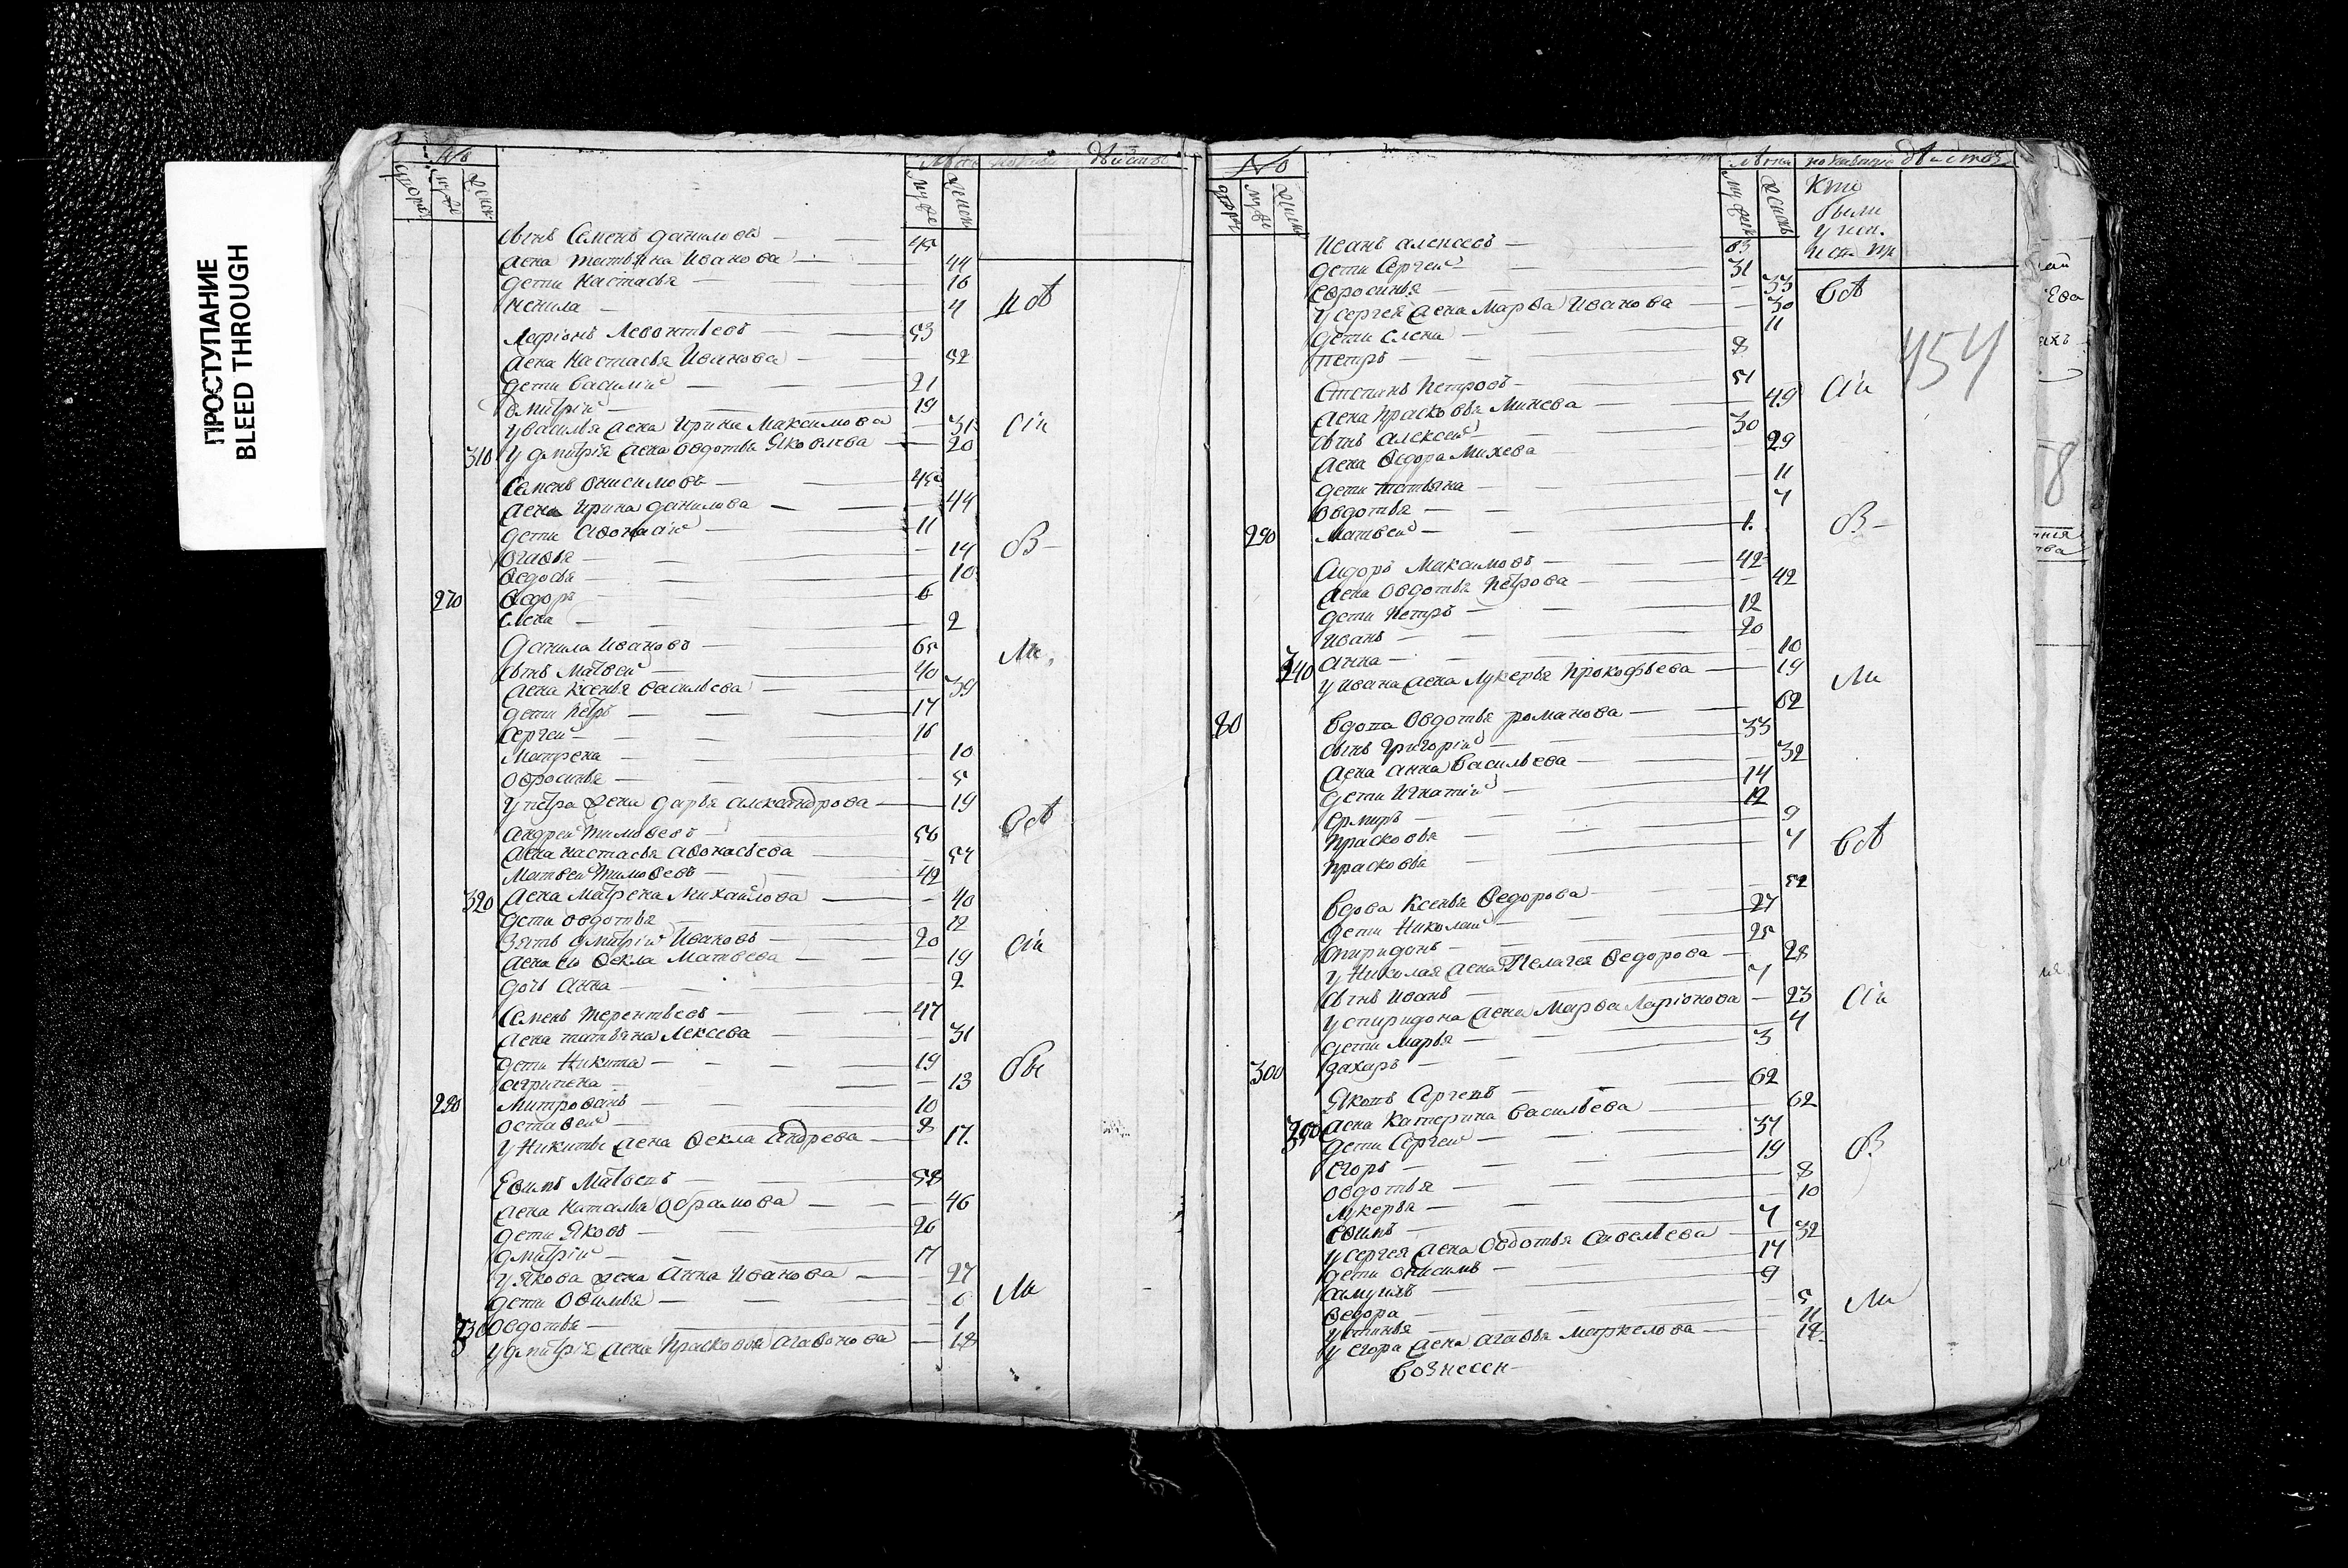 ПРОСТУПАНИЕ
BLEED THROUGH
№
дворов
муже
женск
Лета
муже
женск
сынъ Семенъ даниловъ 45
жена татьяна Иванова 44
дети Настасья 16
Ненила 4
Ларіонъ Левонтьевъ 53
жена Настасья Иванова 52
дети василий 21
дмитрій 19
у василья жена Ирина Максимова 31
310 у дмитрія жена овдотья Яковлева 20
Семенъ Онисимовъ 45
жена Ирина данилова 44
дети 11
огавья 14
Ѳедосья 10
270 Ѳедоръ 6
елена 2
данила Ивановъ 65
сынъ Матвей 40
жена Ксенья васильева 39
дети Петръ 17
Сергей 16
Матрена 10
офросинья 5
у петра жена дарья александрова 19
андрей тимоѳеевъ 56
жена настасья аѳонасьева 54
Матвей тимоѳеевъ 42
320 жена Матрена Михайлова 40
дети овдотья 12
зять дмитрій Ивановъ 20
жена ево Ѳекла Матвеева 19
дочь анна 2
Семенъ терентьевъ 47
жена татьяна Алексева 31
дети Никита 19
огрипена 13
280 Митрофанъ 10
остаѳей 8
у Никиты жена Ѳекла андрева 17
Еѳимъ Матвеевъ 58
жена наталья Обрамова 46
дети Яковъ 26
дмитрій 17
у Якова жена анна Иванова 27
дети оѳимья 6
330 овдотья 1
у дмитрія жена Прасковья агаѳонова 18
№
дворов
муже
женск
Лета
муже
женск
Кто
были
у исп.
454
Иванъ алексеевъ 63
дети Сергей 31
еѳросинья 33
у сергея жена Марѳа Иванова 30
дети елена 11
петръ 8
Степанъ Петровъ 51
жена Прасковья Минева 49
сынъ алексей 30
жена Ѳедора Михева 29
дети татьяна 11
овдотья 7
290 Матвей 1
Сидоръ Максимовъ 42
жена овдотья Петрова 42
дети Петръ 12
Иванъ 20
анна 10
340 у ивана жена лукерья Прокофьева 19
80 вдова овдотья романова 62
сынъ григорій 33
жена анна васильева 32
дети Игнатій 14
ермиръ 12
прасковья 9
прасковья 7
вдова Ксенья Ѳедорова 52
дети Николай 27
спиридонъ 25
у Николая жена Пелагея Ѳедорова 28
сынъ Иванъ 7
у спиридона жена Марѳа Ларіонова 23
дети Марья 4
300 захаръ 3
Яковъ Сергеевъ 62
350 жена Катерина васильева 62
дети Сергей 37
егоръ 19
овдотья 8
лукерья 10
еѳимъ 7
у сергея жена Овдотья Савельева 32
дети Онисимъ 14
самуилъ 9
Ѳедора 5
устинья 11
у егора жена агаѳья маркелова 18
вознесен